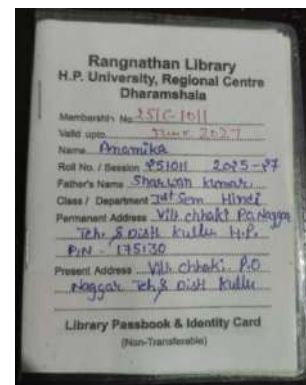 Rangnathan Library
H.P. University, Regional Centre
Dharamshala
Membership No. 251C-1011
Valid upto June 2027
Name Anamika
Roll No. / Session 251011 2025-27
Father's Name Sharwan Kumar
Class / Department Ist Sem Hindi
Permanent Address Vill. Chhaki P.O. Naggar
Teh. & Distt Kullu H.P.
PIN - 175130
Present Address Vill. Chhaki. P.O
Naggar Teh & Distt Kullu
Library Passbook & Identity Card
(Non-Transferable)